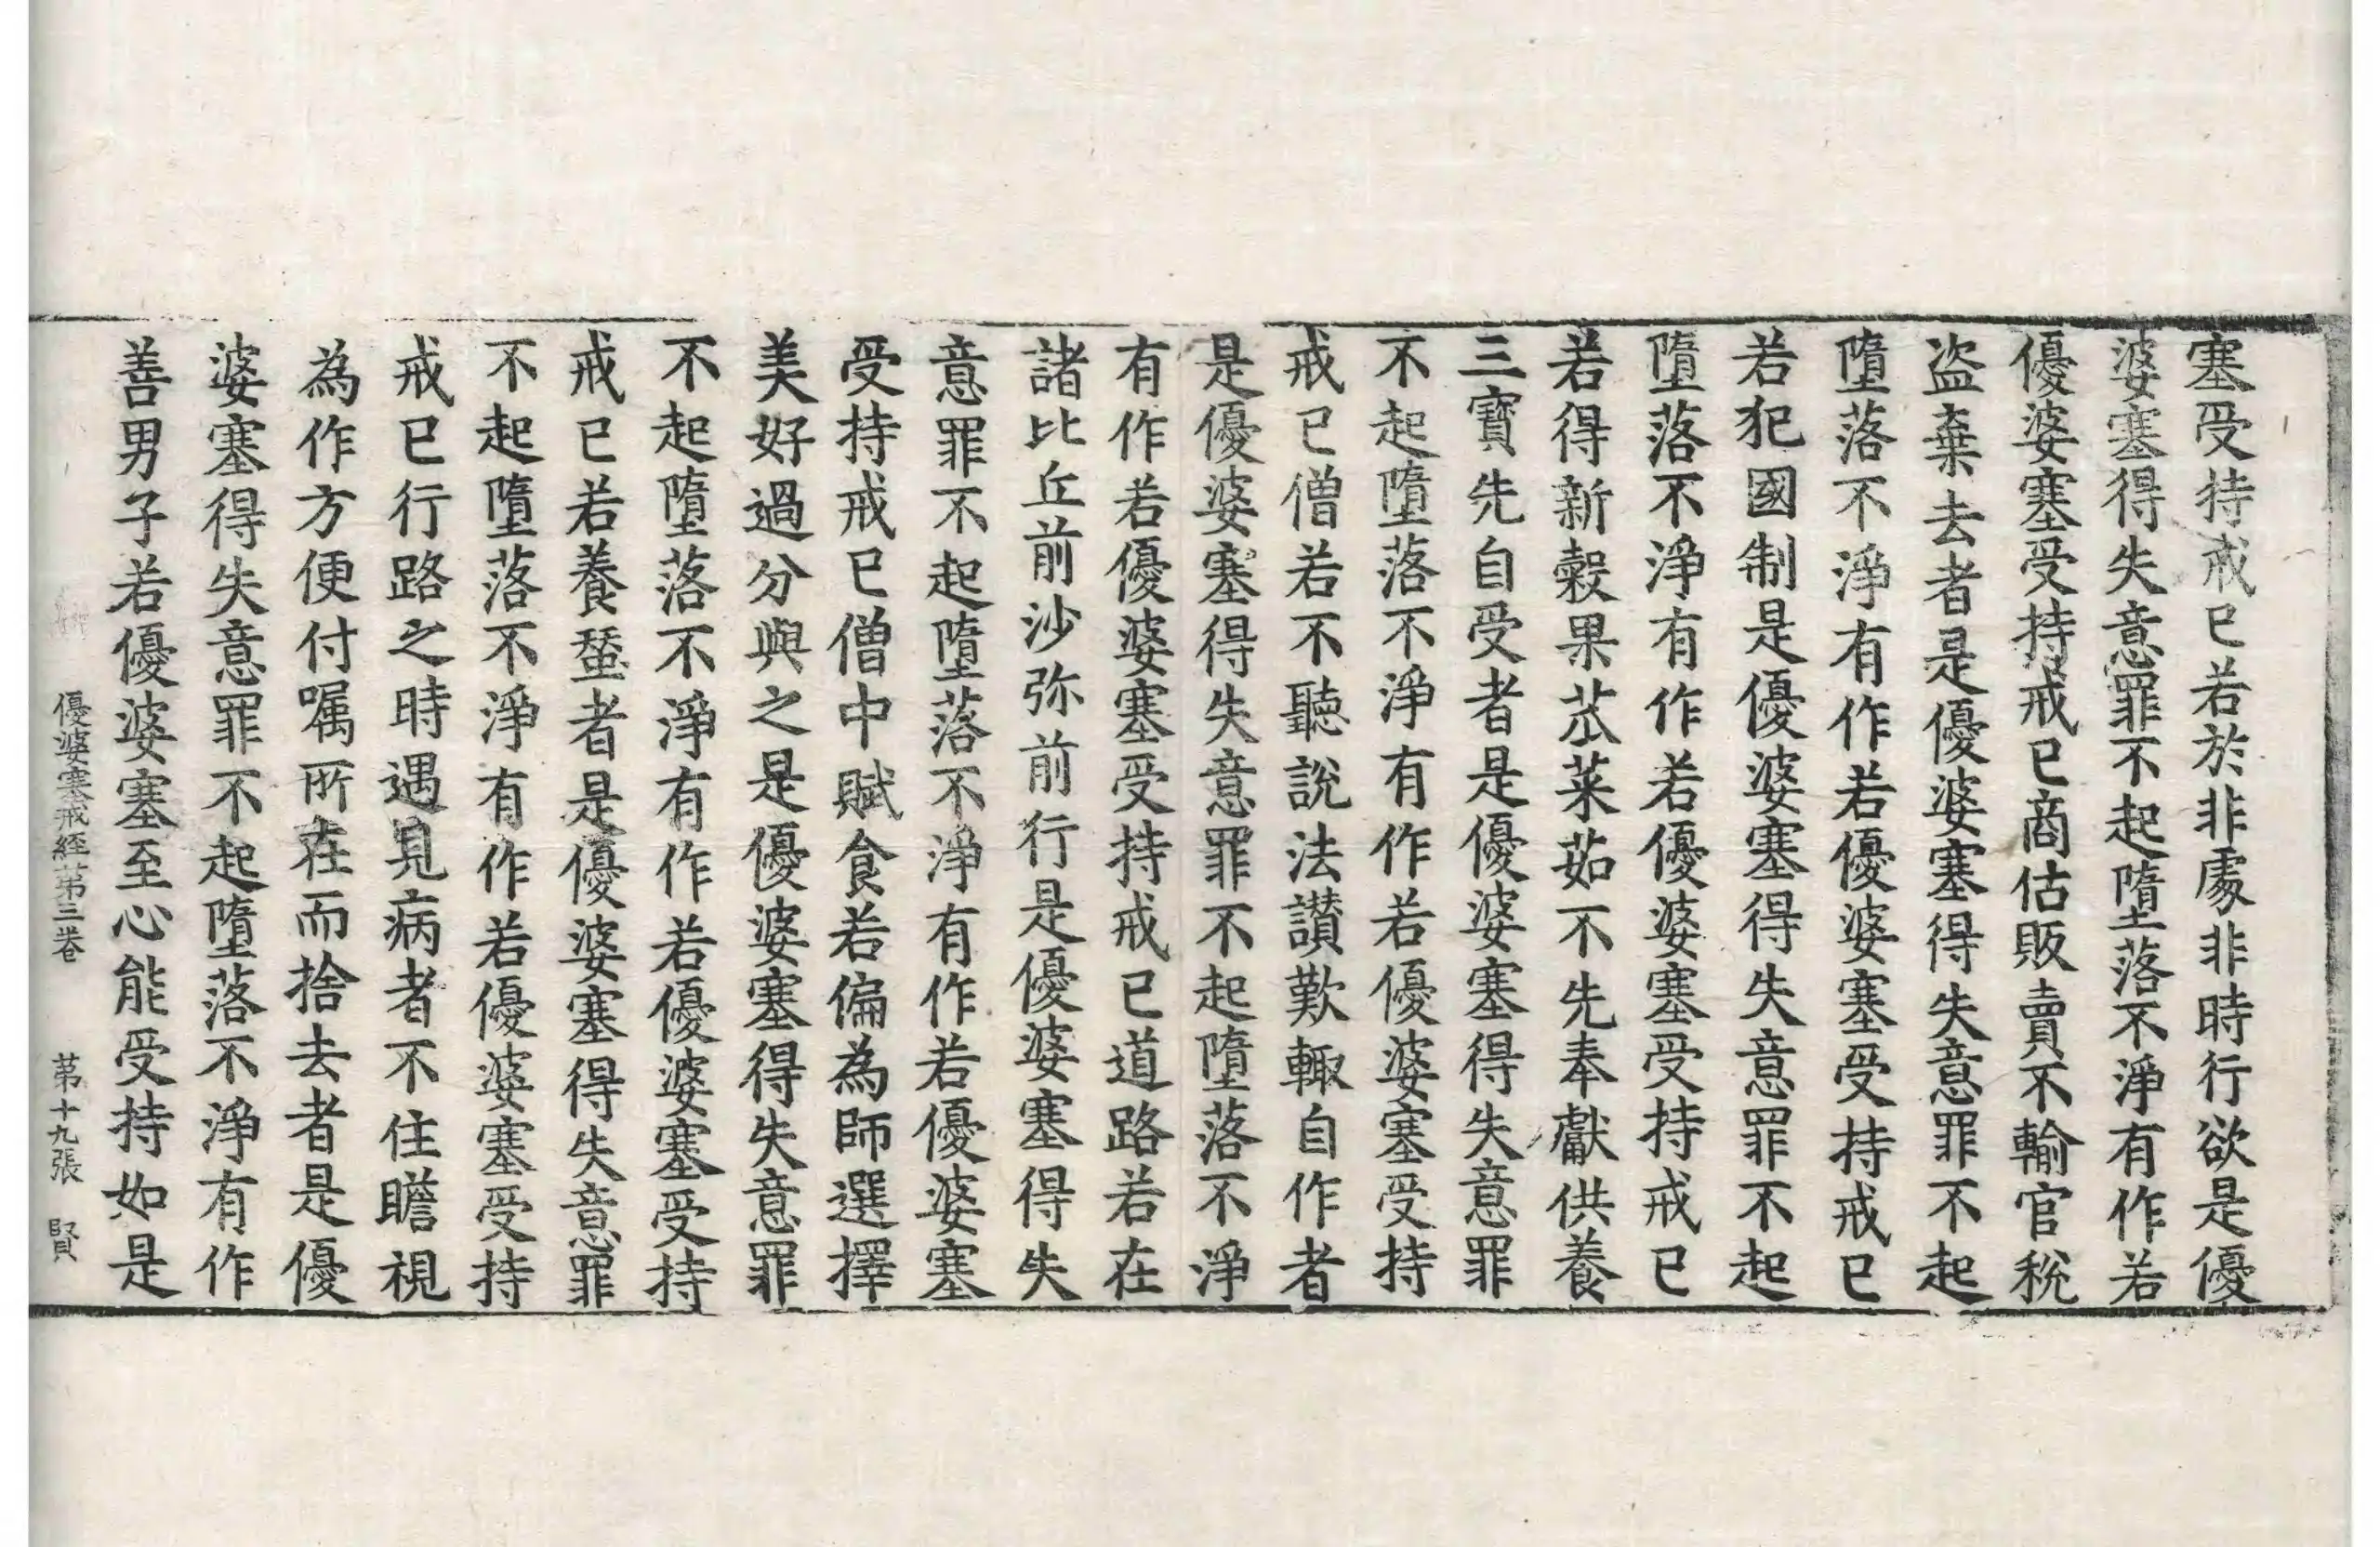 塞受持戒已若於非處非時行欲是優
婆塞得失意罪不起墮落不淨有作若
優婆塞受持戒已商估販賣不輸官稅
盜棄去者是優婆塞得失意罪不起
墮落不淨有作若優婆塞受持戒已
若犯國制是優婆塞得失意罪不起
墮落不淨有作若優婆塞受持戒已
若得新穀果苽菜茹不先奉獻供養
三寶先自受者是優婆塞得失意罪
不起墮落不淨有作若優婆塞受持
戒已僧若不聽說法讚歎輙自作者
是優婆塞得失意罪不起墮落不淨
有作若優婆塞受持戒已道路若在
諸比丘前沙弥前行是優婆塞得失
意罪不起墮落不淨有作若優婆塞
受持戒已僧中賦食若偏為師選擇
美好過分與之是優婆塞得失意罪
不起墮落不淨有作若優婆塞受持
戒已若養蝅者是優婆塞得失意罪
不起墮落不淨有作若優婆塞受持
戒已行路之時遇見病者不住瞻視
為作方便付嘱所在而捨去者是優
婆塞得失意罪不起墮落不淨有作
善男子若優婆塞至心能受持如是
優婆塞戒經苐三卷 苐十九張 賢